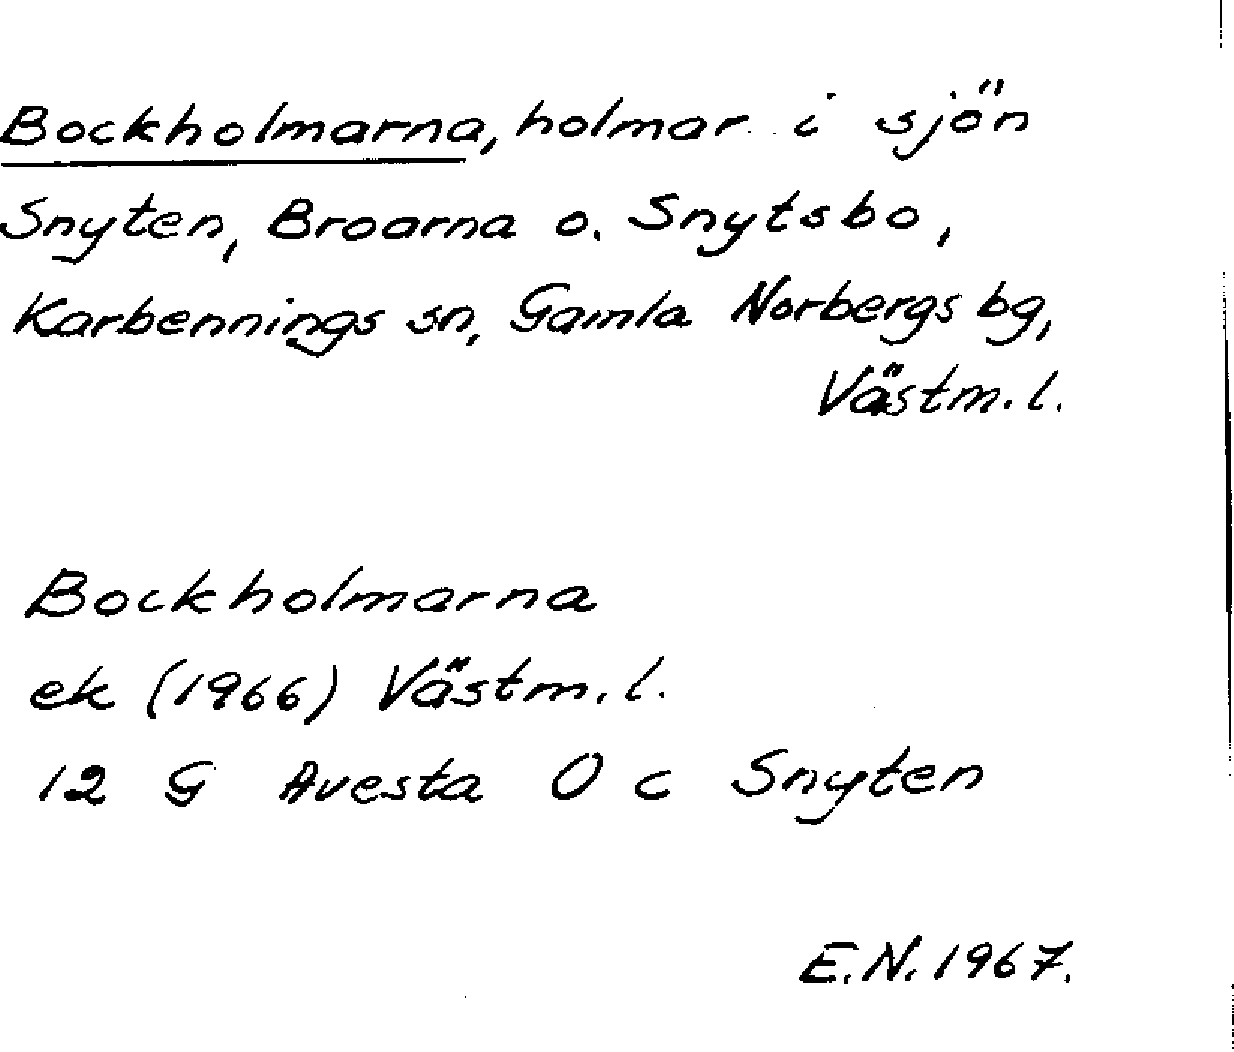 Bockholmarna, holmar i sjön
Snyten, Broarna o. Snytsbo,
Karbennings sn, Gamla Norbergs bg,
Västm. l.
Bockholmarna
ek (1966) Västm. l.
12 G Avesta O c Snyten
E.N. 1967.